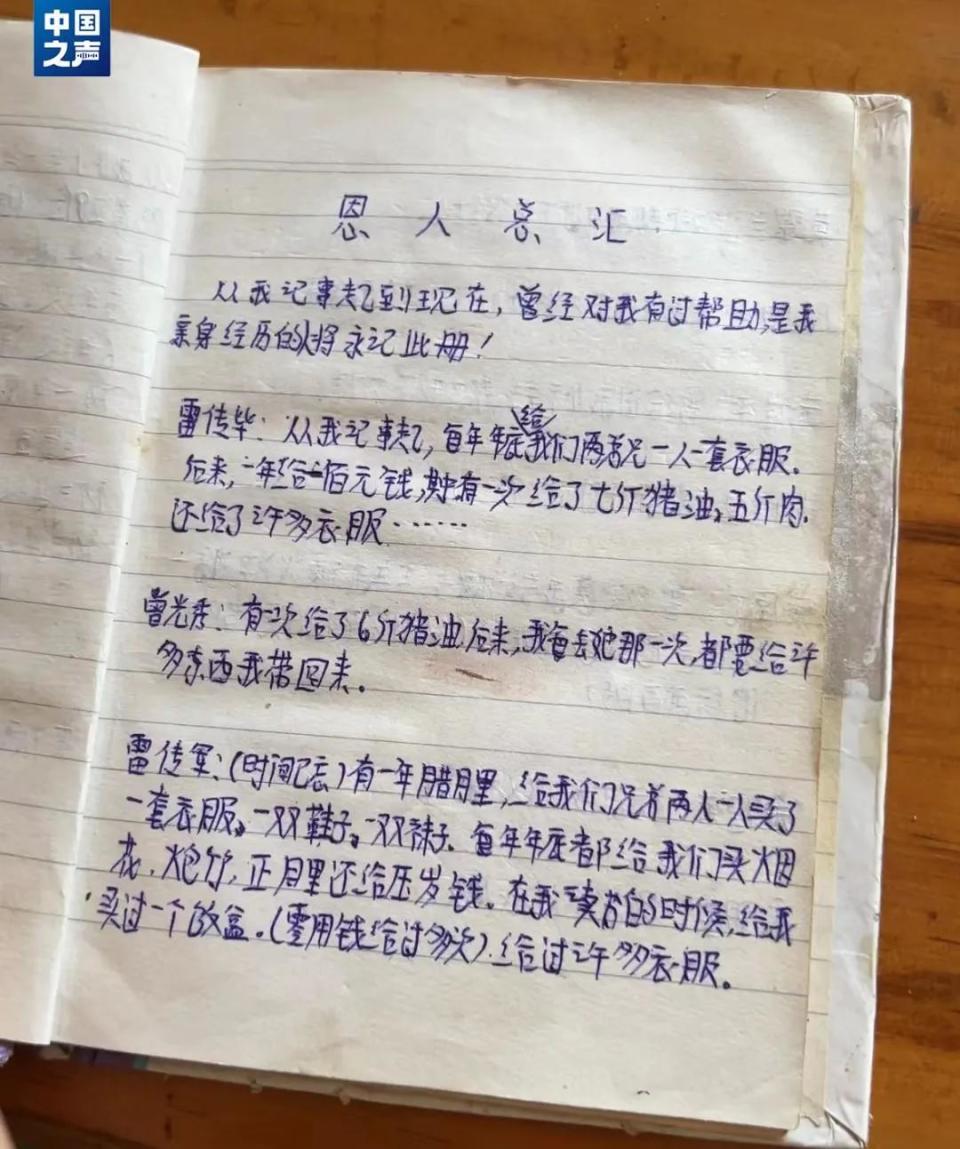 中国
之声
恩人总汇
从我记事起到现在，曾经对我有过帮助，是我
亲身经历的将永记此册！
雷传毕：从我记事起，每年年底给我们两弟兄一人一套衣服。
后来，一年给一佰元钱，其中有一次给了七斤猪油，五斤肉，
还给了许多衣服……
曾光秀：有一次给了6斤猪油，后来，我每去她那一次，都要给许
多东西我带回来。
雷传军：（时间忘）有一年腊月里，给我们兄弟两人一人买了
一套衣服，一双鞋子，一双袜子。每年年底都给我们买烟
花，炮竹，正月里还给压岁钱。在我读书的时候，给我
买过一个饭盒。（零用钱给过多次）．给过许多衣服。